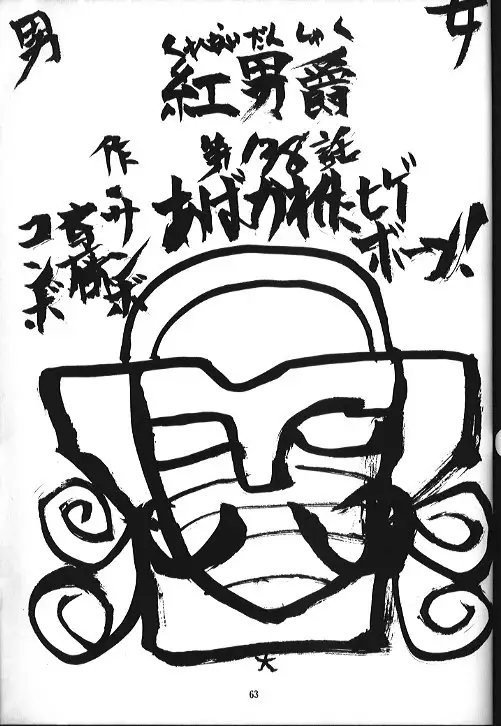 男
女
くれないだんしゃく
紅男爵
第138話
あばかれた、ヒゲ
ボーン!
作
コンボ
63